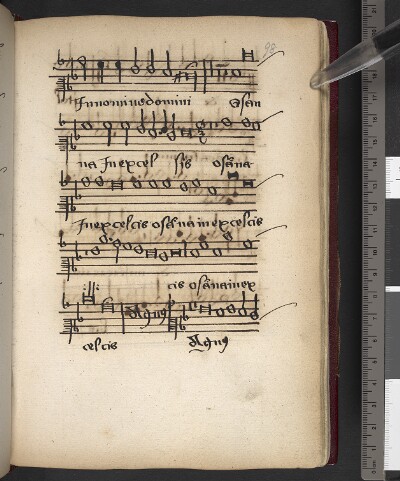 98
In nomine domini osan
na In excel sis osãna
In excelcis osãna in excelcis
cis osãna in ex
Agnus
celcis Agnus